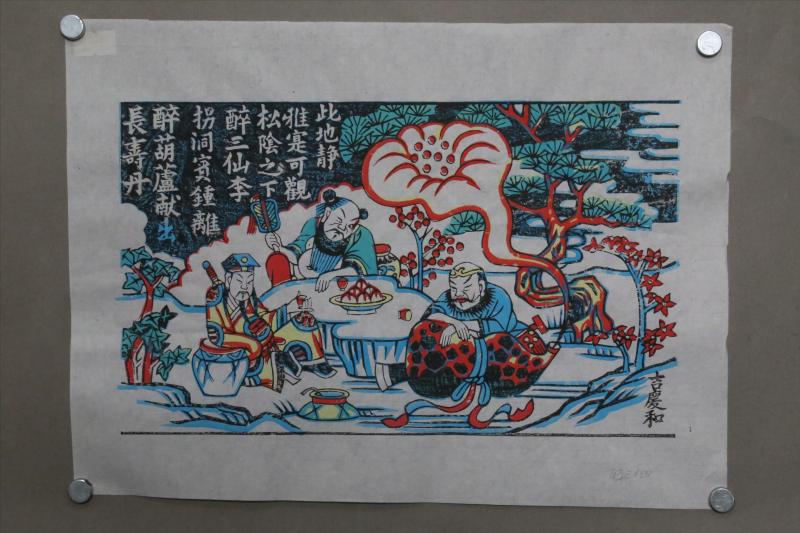 此地静
雅寔可觀
松陰之下
醉三仙李
拐洞賓鍾離
醉葫蘆献出
長壽丹
吉慶和